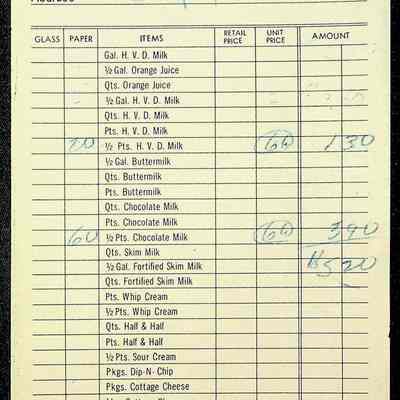 GLASS PAPER ITEMS RETAIL PRICE UNIT PRICE AMOUNT
Gal. H. V. D. Milk
½ Gal. Orange Juice
Qts. Orange Juice
½ Gal. H. V. D. Milk
Qts. H. V. D. Milk
Pts. H. V. D. Milk
20 ½ Pts. H. V. D. Milk 6½ 130
½ Gal. Buttermilk
Qts. Buttermilk
Pts. Buttermilk
Qts. Chocolate Milk
Pts. Chocolate Milk
60 ½ Pts. Chocolate Milk 6½ 390
Qts. Skim Milk
½ Gal. Fortified Skim Milk $520
Qts. Fortified Skim Milk
Pts. Whip Cream
½ Pts. Whip Cream
Qts. Half & Half
Pts. Half & Half
½ Pts. Sour Cream
Pkgs. Dip-N- Chip
Pkgs. Cottage Cheese